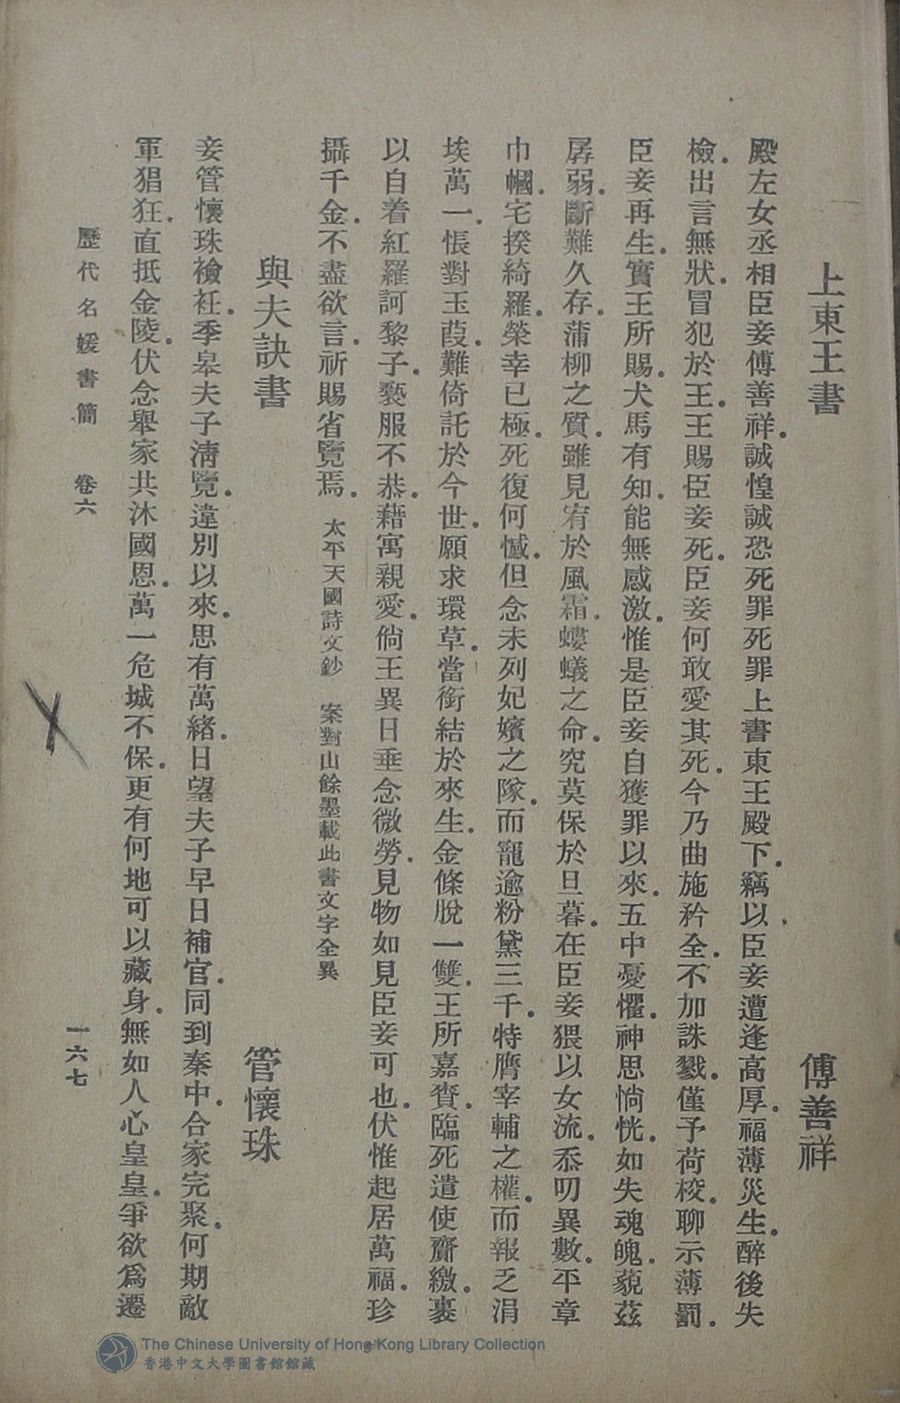 上東王書
傅善祥
殿左女丞相臣妾傅善祥。誠惶誠恐死罪死罪上書東王殿下。竊以臣妾遭逢高厚。福薄災生。醉後失
檢。出言無狀。冒犯於王。王賜臣妾死。臣妾何敢愛其死。今乃曲施矜全。不加誅戮。僅予荷校。聊示薄罰。
臣妾再生。實王所賜。犬馬有知。能無感激。惟是臣妾自獲罪以來。五中憂懼。神思惝恍。如失魂魄。藐茲
孱弱。斷難久存。蒲柳之質。雖見宥於風霜。螻蟻之命。究莫保於旦暮。在臣妾猥以女流。忝叨異數。平章
巾幗。宅揆綺羅。榮幸已極。死復何憾。但念未列妃嬪之隊。而寵逾粉黛三千。特膺宰輔之權。而報乏涓
埃萬一。悵對玉葭。難倚託於今世。願求環草。當銜結於來生。金條脫一雙。王所嘉賚。臨死遣使齎繳。裹
以自着紅羅訶黎子。褻服不恭。藉寓親愛。倘王異日垂念微勞。見物如見臣妾可也。伏惟起居萬福。珍
攝千金。不盡欲言。祈賜省覽焉。 太平天國詩文鈔 案對山餘墨載此書文字全異
與夫訣書
管懷珠
妾管懷珠襝衽。季皋夫子淸覽。違別以來。思有萬緒。日望夫子早日補官。同到秦中。合家完聚。何期敵
軍猖狂。直抵金陵。伏念舉家共沐國恩。萬一危城不保。更有何地可以藏身。無如人心皇皇。爭欲爲遷
歷代名媛書簡 卷六
一六七
The Chinese University of Hong Kong Library Collection
香港中文大學圖書館館藏